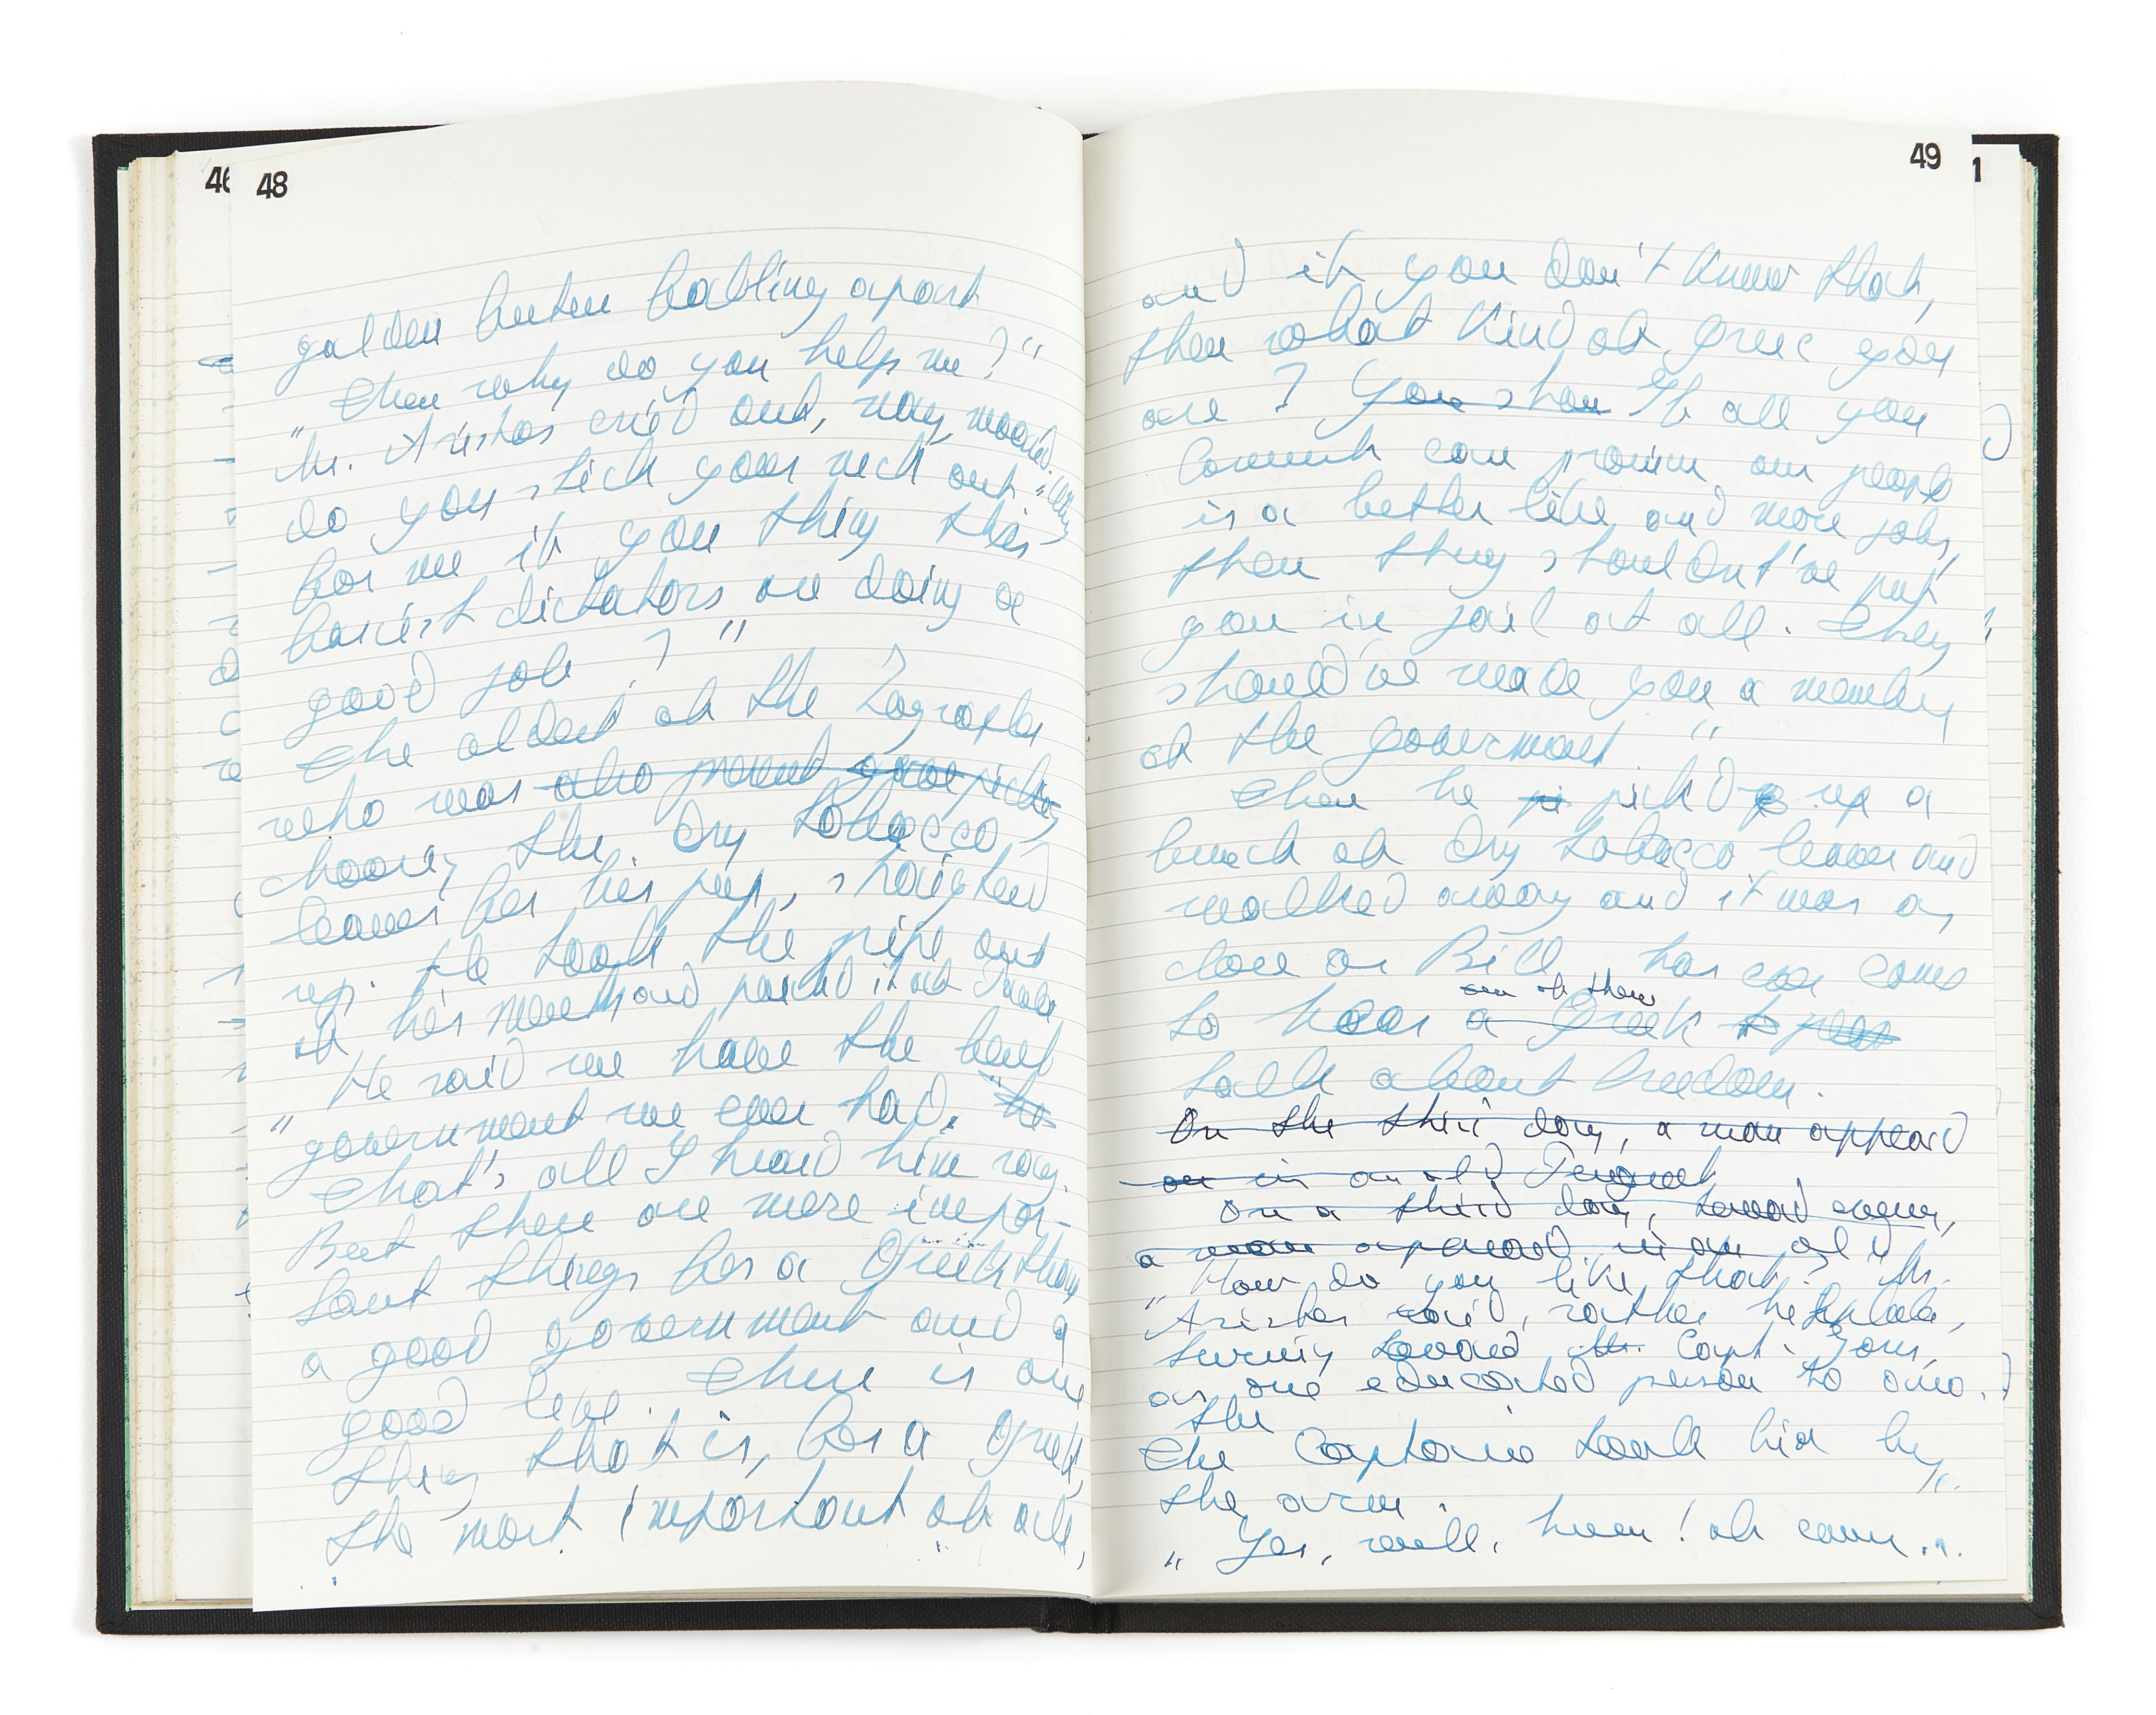 46
48
golden button falling apart
"Then why do you help me?"
Mr. Aristos cri'd out, very,
do you stick your neck out "Why
for me if you thing this
fasist dictators are doing a
good job?"
The oldest of the Zografos
who was also present
choosing the dry tobacco
leaves for his pip, straighted
up. He took the pipe out
of his mouth and it at
"He said we have the best
government we ever had. he
That's all I heard him say.
But there are more impor-
tant things for a Greek than
a good government and a
good life. There is one
thing that is, for a Greek,
the most important of all,
49
and if you don't know that,
then what kind of Greec you
are? You shou If all you
can promise our people
is a better life and more jobs,
then they shouldnt've put
you in jail at all. They
should've made you a member
of the goverment."
Then he pi pick'd up a
bunch of dry tobacco leaves and
walked away and it was as
close as Bill has ever come
one of them
to hear a Greek to
talk about freedom.
On the third day, a man appeard
on in an old
On a third day, toward
a man appeared in an old
"How do you like that? Mr.
Aristos said, rather helpless,
turning toward Mr. Capt.
as one educated person to ano.
the
The Captain took him by
the arm.
"Yes, well, hmm! of cour...